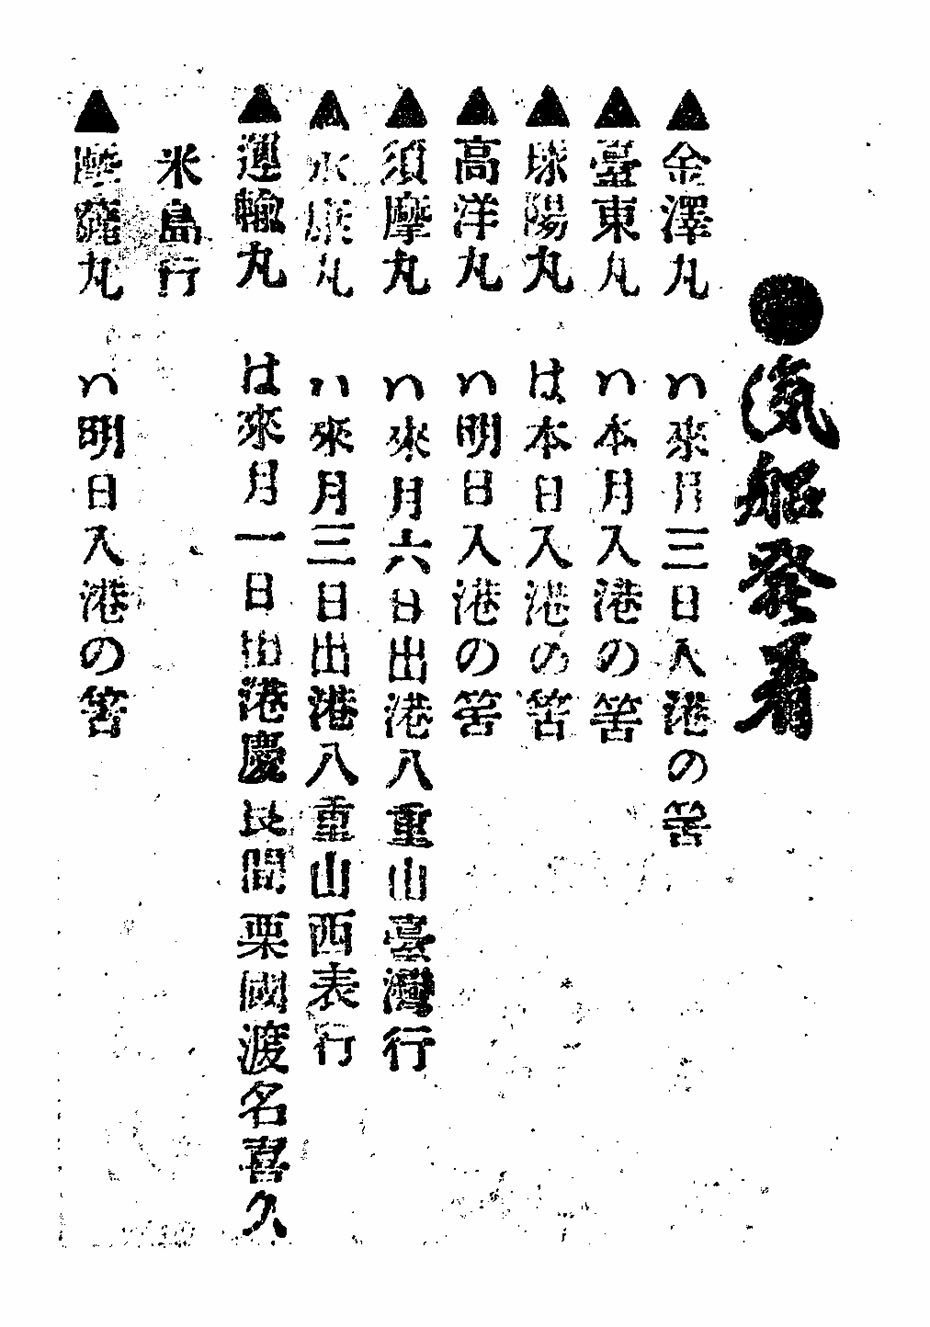 ●滊船發着
▲金澤丸 ハ來月三日入港の筈
▲臺東丸 ハ本月入港の筈
▲球陽丸 は本日入港の筈
▲高洋丸 ハ明日入港の筈
▲須摩丸 ハ來月六日出港八重山臺灣行
▲永康丸 ハ來月三日出港八重山西表行
▲運輸丸 は來月一日出港慶良間栗國渡名喜久
米島行
▲摩龍丸 ハ明日入港の筈